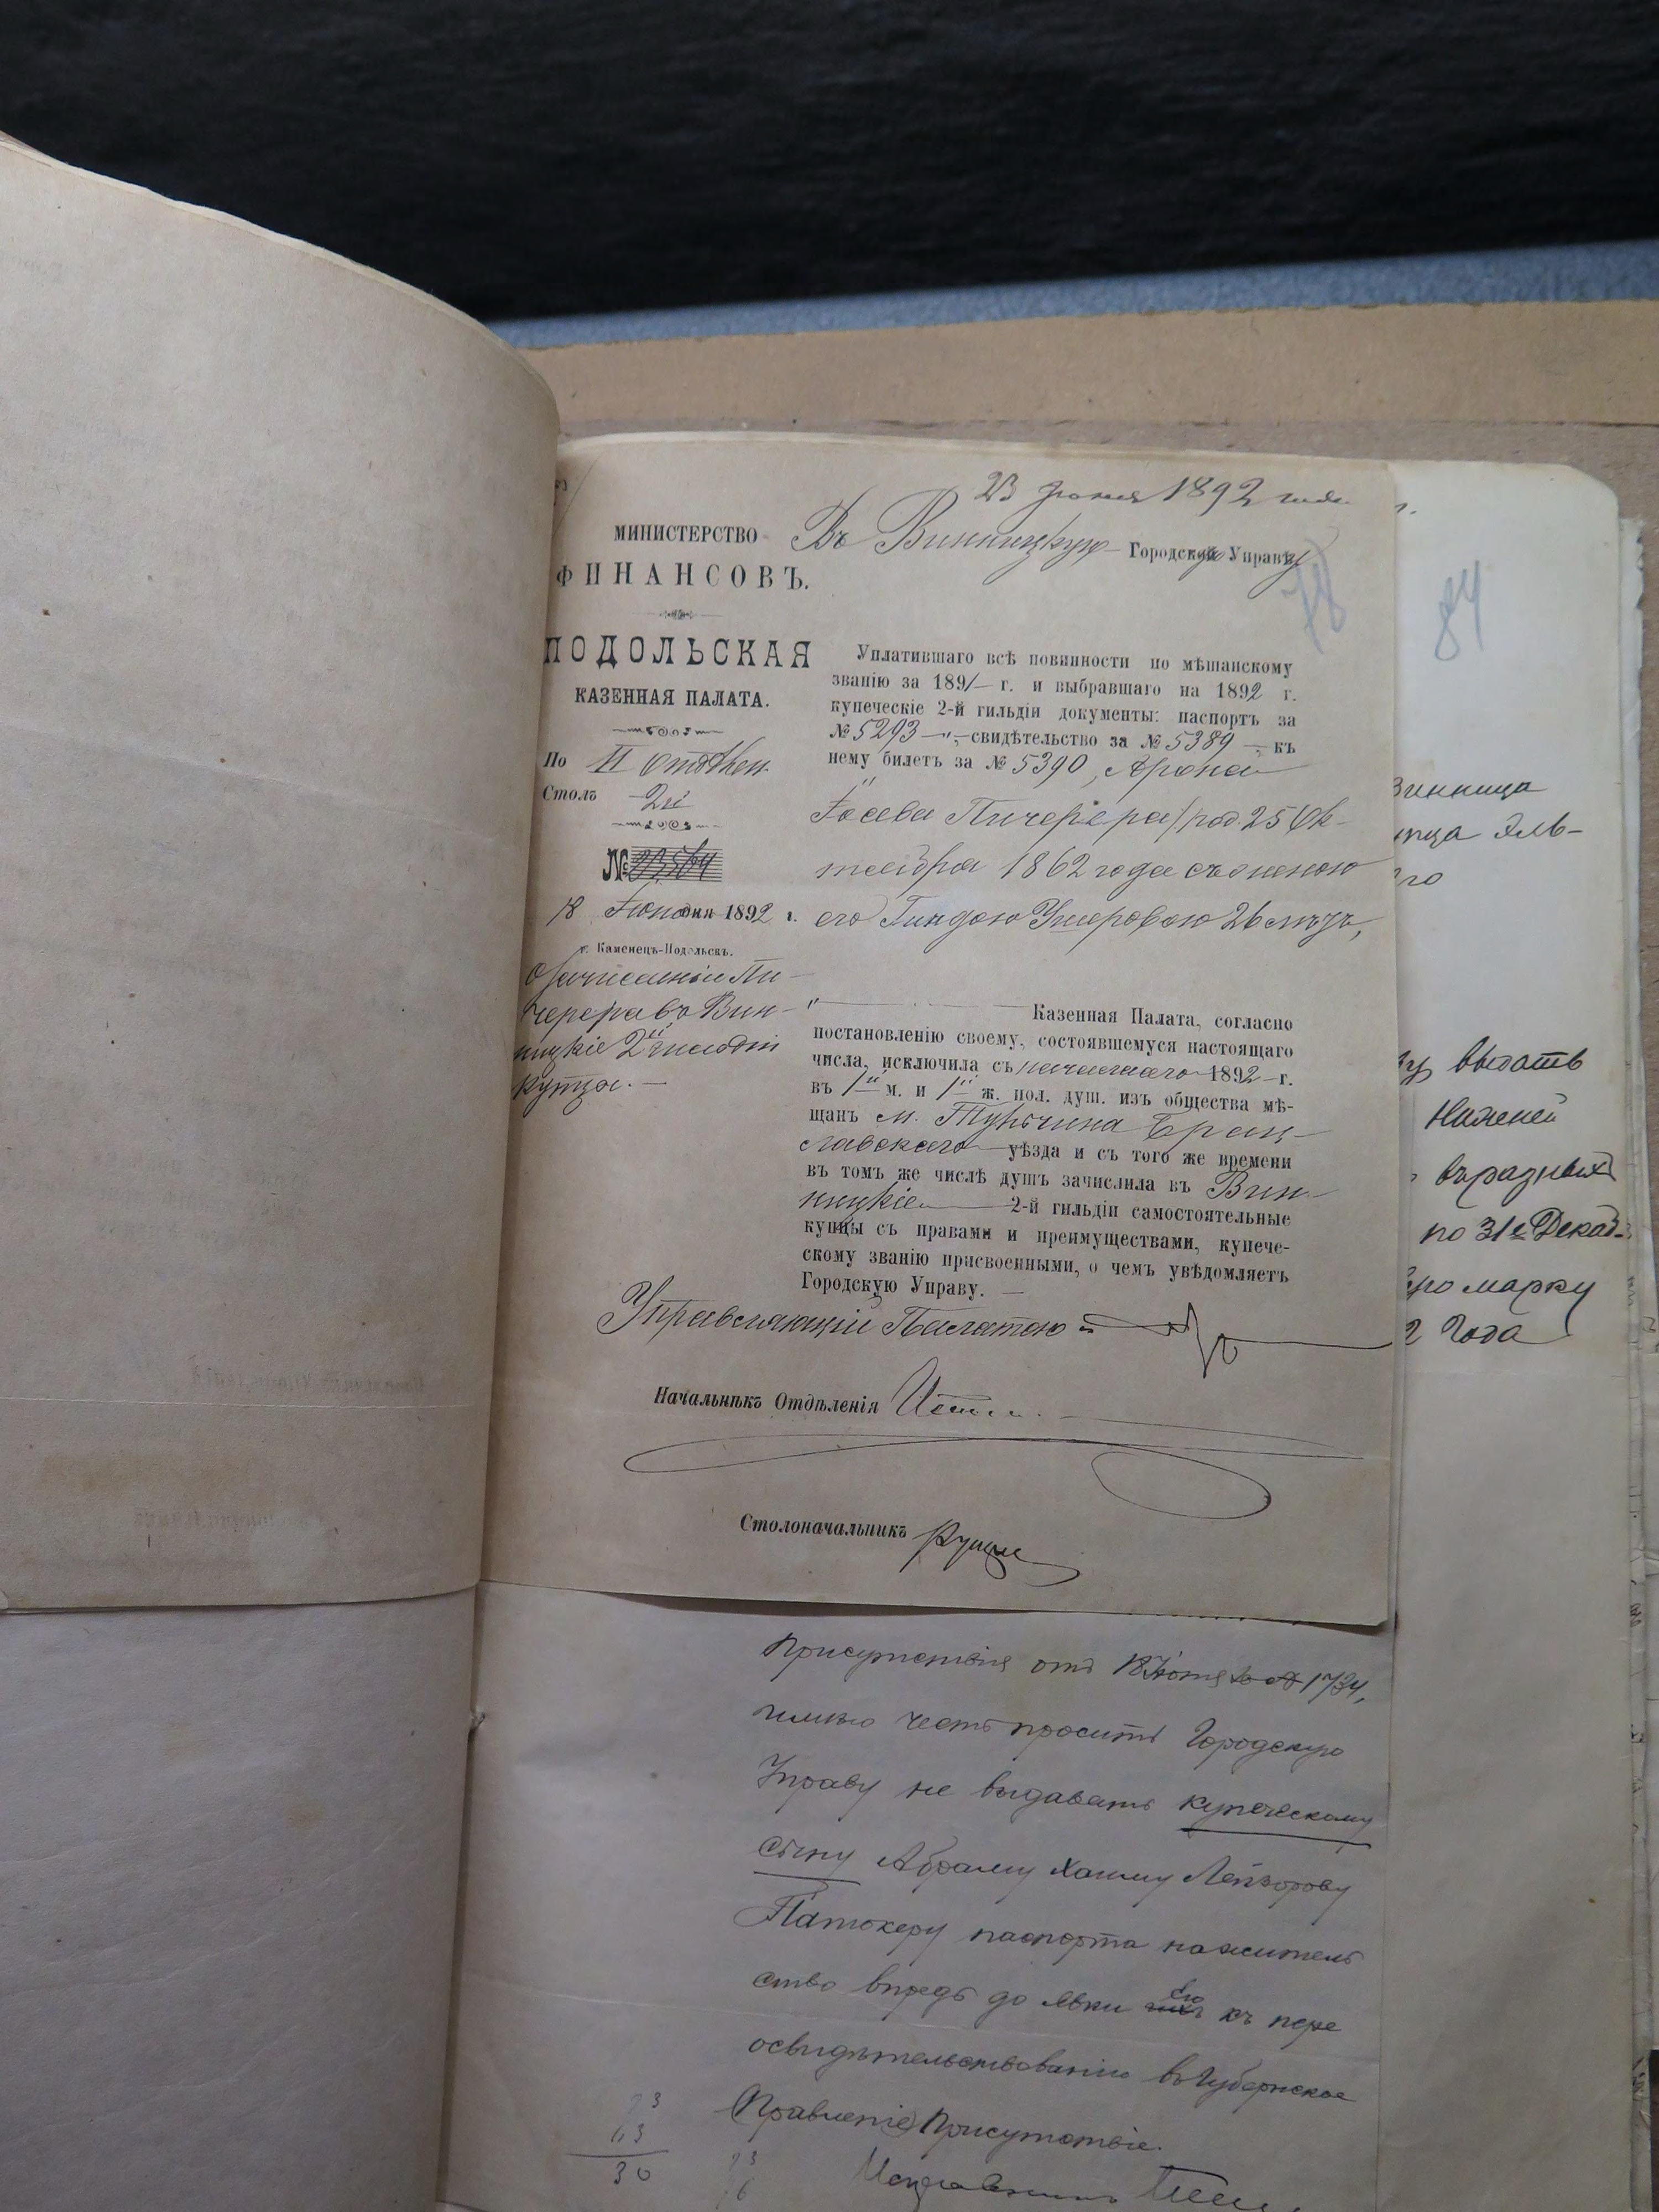 23 Іюня 1892 года
МИНИСТЕРСТВО
ФИНАНСОВЪ.
ПОДОЛЬСКАЯ
КАЗЕННАЯ ПАЛАТА.
По II Отдѣлен.
Столъ 2й
№ 23564
18 Іюня дня 1892 г.
г. Каменецъ-Подольскъ.
О зачисленіи Пи-
черера въ Вин-
ницкіе 2й гильдіи
купцы.
Въ Винницкую Городскую Управу
78
Уплатившаго всѣ повинности по мѣщанскому
званію за 1891 г. и выбравшаго на 1892 г.
купеческіе 2-й гильдіи документы: паспортъ за
№ 5293 „ свидѣтельство за № 5389, къ
нему билетъ за № 5390, Арона
Іосева Пичерера / род. 25 Ок-
тября 1862 года съ женою
его Гиндою Умеровою 26 лѣтъ,
" Казенная Палата, согласно
постановленію своему, состоявшемуся настоящаго
числа, исключила съ 1892 г.
въ 1й м. и 1й ж. пол. душ. изъ общества мѣ-
щанъ м. Тульчина Брац-
лавскаго уѣзда и съ того же времени
въ томъ же числѣ душъ зачислила въ Вин-
ницкіе 2-й гильдіи самостоятельные
купцы съ правами и преимуществами, купече-
скому званію присвоенными, о чемъ увѣдомляетъ
Городскую Управу.
Управляющій Палатою
Начальникъ Отдѣленія
Столоначальникъ
Присутствія отъ 18 Іюня за № 1734,
имѣю честь просить Городскую
Управу не выдавать купеческому
сыну Абраму Хаиму Лейзорову
Патокеру паспорта на житель
ство впредь до явки его къ пере
освидѣтельствованію въ Губернское
(Правленіе) Присутствіе.
Исправникъ
93
63
30
84
Винница
выдать
Нижней
въ разныхъ
по 31е Декаб-
марку
2 года